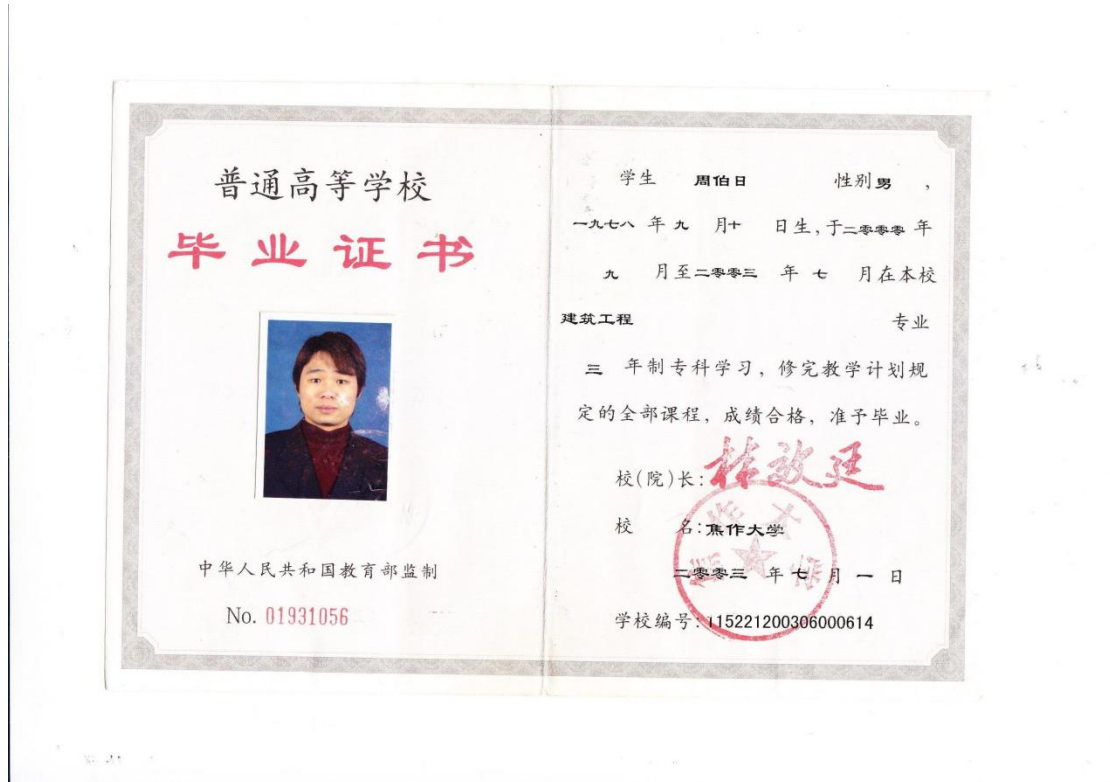 普通高等学校
毕业证书
中华人民共和国教育部监制
No. 01931056
学生 周伯日 性别男,
一九七八 年 九 月十 日生,于二零零零 年
九 月至二零零三 年 七 月在本校
建筑工程 专业
三 年制专科学习,修完教学计划规
定的全部课程,成绩合格,准予毕业。
校(院)长:
校 名:焦作大学
二零零三 年 七 月 一 日
学校编号:115221200306000614
焦作大学